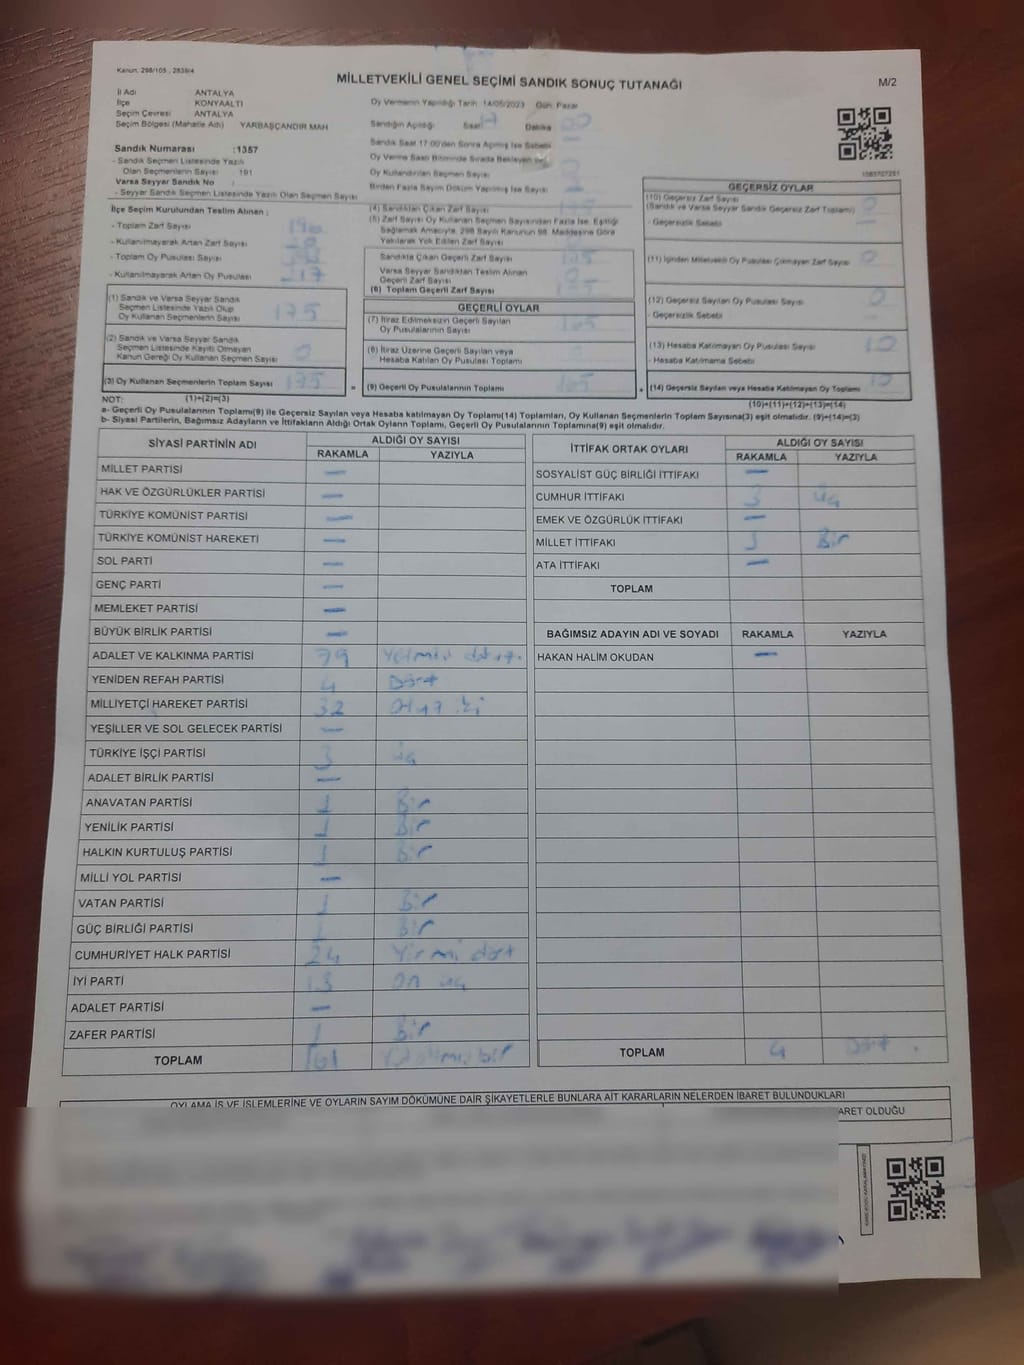 Kanun. 298/105 , 2839/4
MİLLETVEKİLİ GENEL SEÇİMİ SANDIK SONUÇ TUTANAĞI
M/2
İl Adı ANTALYA
İlçe KONYAALTI
Seçim Çevresi ANTALYA
Seçim Bölgesi (Mahalle Adı) YARBAŞÇANDIR MAH
Oy Vermenin Yapıldığı Tarih 14/05/2023 Gün: Pazar
Sandığın Açılışı Saat 17 Dakika 00
Sandık Saat 17:00'den Sonra Açılmış İse Sebebi
Oy Verme Saati Bitiminde Sırada Bekleyen
Oy Kullandırılan Seçmen Sayısı
Birden Fazla Sayım Döküm Yapılmış İse Sayısı
Sandık Numarası :1357
- Sandık Seçmen Listesinde Yazılı
Olan Seçmenlerin Sayısı 191
Varsa Seyyar Sandık No :
- Seyyar Sandık Seçmen Listesinde Yazılı Olan Seçmen Sayısı
İlçe Seçim Kurulundan Teslim Alınan ;
- Toplam Zarf Sayısı
- Kullanılmayarak Artan Zarf Sayısı
- Toplam Oy Pusulası Sayısı
- Kullanılmayarak Artan Oy Pusulası
(1) Sandık ve Varsa Seyyar Sandık
Seçmen Listesinde Yazılı Olup
Oy Kullanan Seçmenlerin Sayısı 175
(2) Sandık ve Varsa Seyyar Sandık
Seçmen Listesinde Kayıtlı Olmayan
Kanun Gereği Oy Kullanan Seçmen Sayısı 0
(3) Oy Kullanan Seçmenlerin Toplam Sayısı 175
(4) Sandıktan Çıkan Zarf Sayısı 175
(5) Zarf Sayısı Oy Kullanan Seçmen Sayısından Fazla İse, Eşitliği
Sağlamak Amacıyla, 298 Sayılı Kanunun 98. Maddesine Göre
Yakılarak Yok Edilen Zarf Sayısı
Sandıkta Çıkan Geçerli Zarf Sayısı 175
Varsa Seyyar Sandıktan Teslim Alınan
Geçerli Zarf Sayısı 0
(6) Toplam Geçerli Zarf Sayısı 175
GEÇERLİ OYLAR
(7) İtiraz Edilmeksizin Geçerli Sayılan
Oy Pusulalarının Sayısı 165
(8) İtiraz Üzerine Geçerli Sayılan veya
Hesaba Katılan Oy Pusulası Toplamı
= (9) Geçerli Oy Pusulalarının Toplamı 165 +
GEÇERSİZ OYLAR
(10) Geçersiz Zarf Sayısı
(Sandık ve Varsa Seyyar Sandık Geçersiz Zarf Toplamı) 0
- Geçersizlik Sebebi
(11) İçinden Milletvekili Oy Pusulası Çıkmayan Zarf Sayısı 0
(12) Geçersiz Sayılan Oy Pusulası Sayısı 0
- Geçersizlik Sebebi
(13) Hesaba Katılmayan Oy Pusulası Sayısı 10
- Hesaba Katılmama Sebebi
(14) Geçersiz Sayılan veya Hesaba Katılmayan Oy Toplamı 10
NOT: (1)+(2)=(3) (10)+(11)+(12)+(13)=(14)
a- Geçerli Oy Pusulalarının Toplamı(9) ile Geçersiz Sayılan veya Hesaba katılmayan Oy Toplamı(14) Toplamları, Oy Kullanan Seçmenlerin Toplam Sayısına(3) eşit olmalıdır. (9)+(14)=(3)
b- Siyasi Partilerin, Bağımsız Adayların ve İttifakların Aldığı Ortak Oyların Toplamı, Geçerli Oy Pusulalarının Toplamına(9) eşit olmalıdır.
SİYASİ PARTİNİN ADI ALDIĞI OY SAYISI
RAKAMLA YAZIYLA
MİLLET PARTİSİ —
HAK VE ÖZGÜRLÜKLER PARTİSİ —
TÜRKİYE KOMÜNİST PARTİSİ —
TÜRKİYE KOMÜNİST HAREKETİ —
SOL PARTİ —
GENÇ PARTİ —
MEMLEKET PARTİSİ —
BÜYÜK BİRLİK PARTİSİ —
ADALET VE KALKINMA PARTİSİ 79
YENİDEN REFAH PARTİSİ 4 Dört
MİLLİYETÇİ HAREKET PARTİSİ 32 Otuz iki
YEŞİLLER VE SOL GELECEK PARTİSİ —
TÜRKİYE İŞÇİ PARTİSİ 3 üç
ADALET BİRLİK PARTİSİ —
ANAVATAN PARTİSİ 1 Bir
YENİLİK PARTİSİ 1 Bir
HALKIN KURTULUŞ PARTİSİ 1 Bir
MİLLİ YOL PARTİSİ —
VATAN PARTİSİ 1 Bir
GÜÇ BİRLİĞİ PARTİSİ 1 Bir
CUMHURİYET HALK PARTİSİ 24 Yirmi dört
İYİ PARTİ 13 on üç
ADALET PARTİSİ —
ZAFER PARTİSİ 1 Bir
TOPLAM 161
İTTİFAK ORTAK OYLARI ALDIĞI OY SAYISI
RAKAMLA YAZIYLA
SOSYALİST GÜÇ BİRLİĞİ İTTİFAKI —
CUMHUR İTTİFAKI 3 üç
EMEK VE ÖZGÜRLÜK İTTİFAKI —
MİLLET İTTİFAKI 1 Bir
ATA İTTİFAKI —
TOPLAM
BAĞIMSIZ ADAYIN ADI VE SOYADI RAKAMLA YAZIYLA
HAKAN HALİM OKUDAN —
TOPLAM 4 Dört
OYLAMA İŞ VE İŞLEMLERİNE VE OYLARIN SAYIM DÖKÜMÜNE DAİR ŞİKAYETLERLE BUNLARA AİT KARARLARIN NELERDEN İBARET BULUNDUKLARI
ARET OLDUĞU